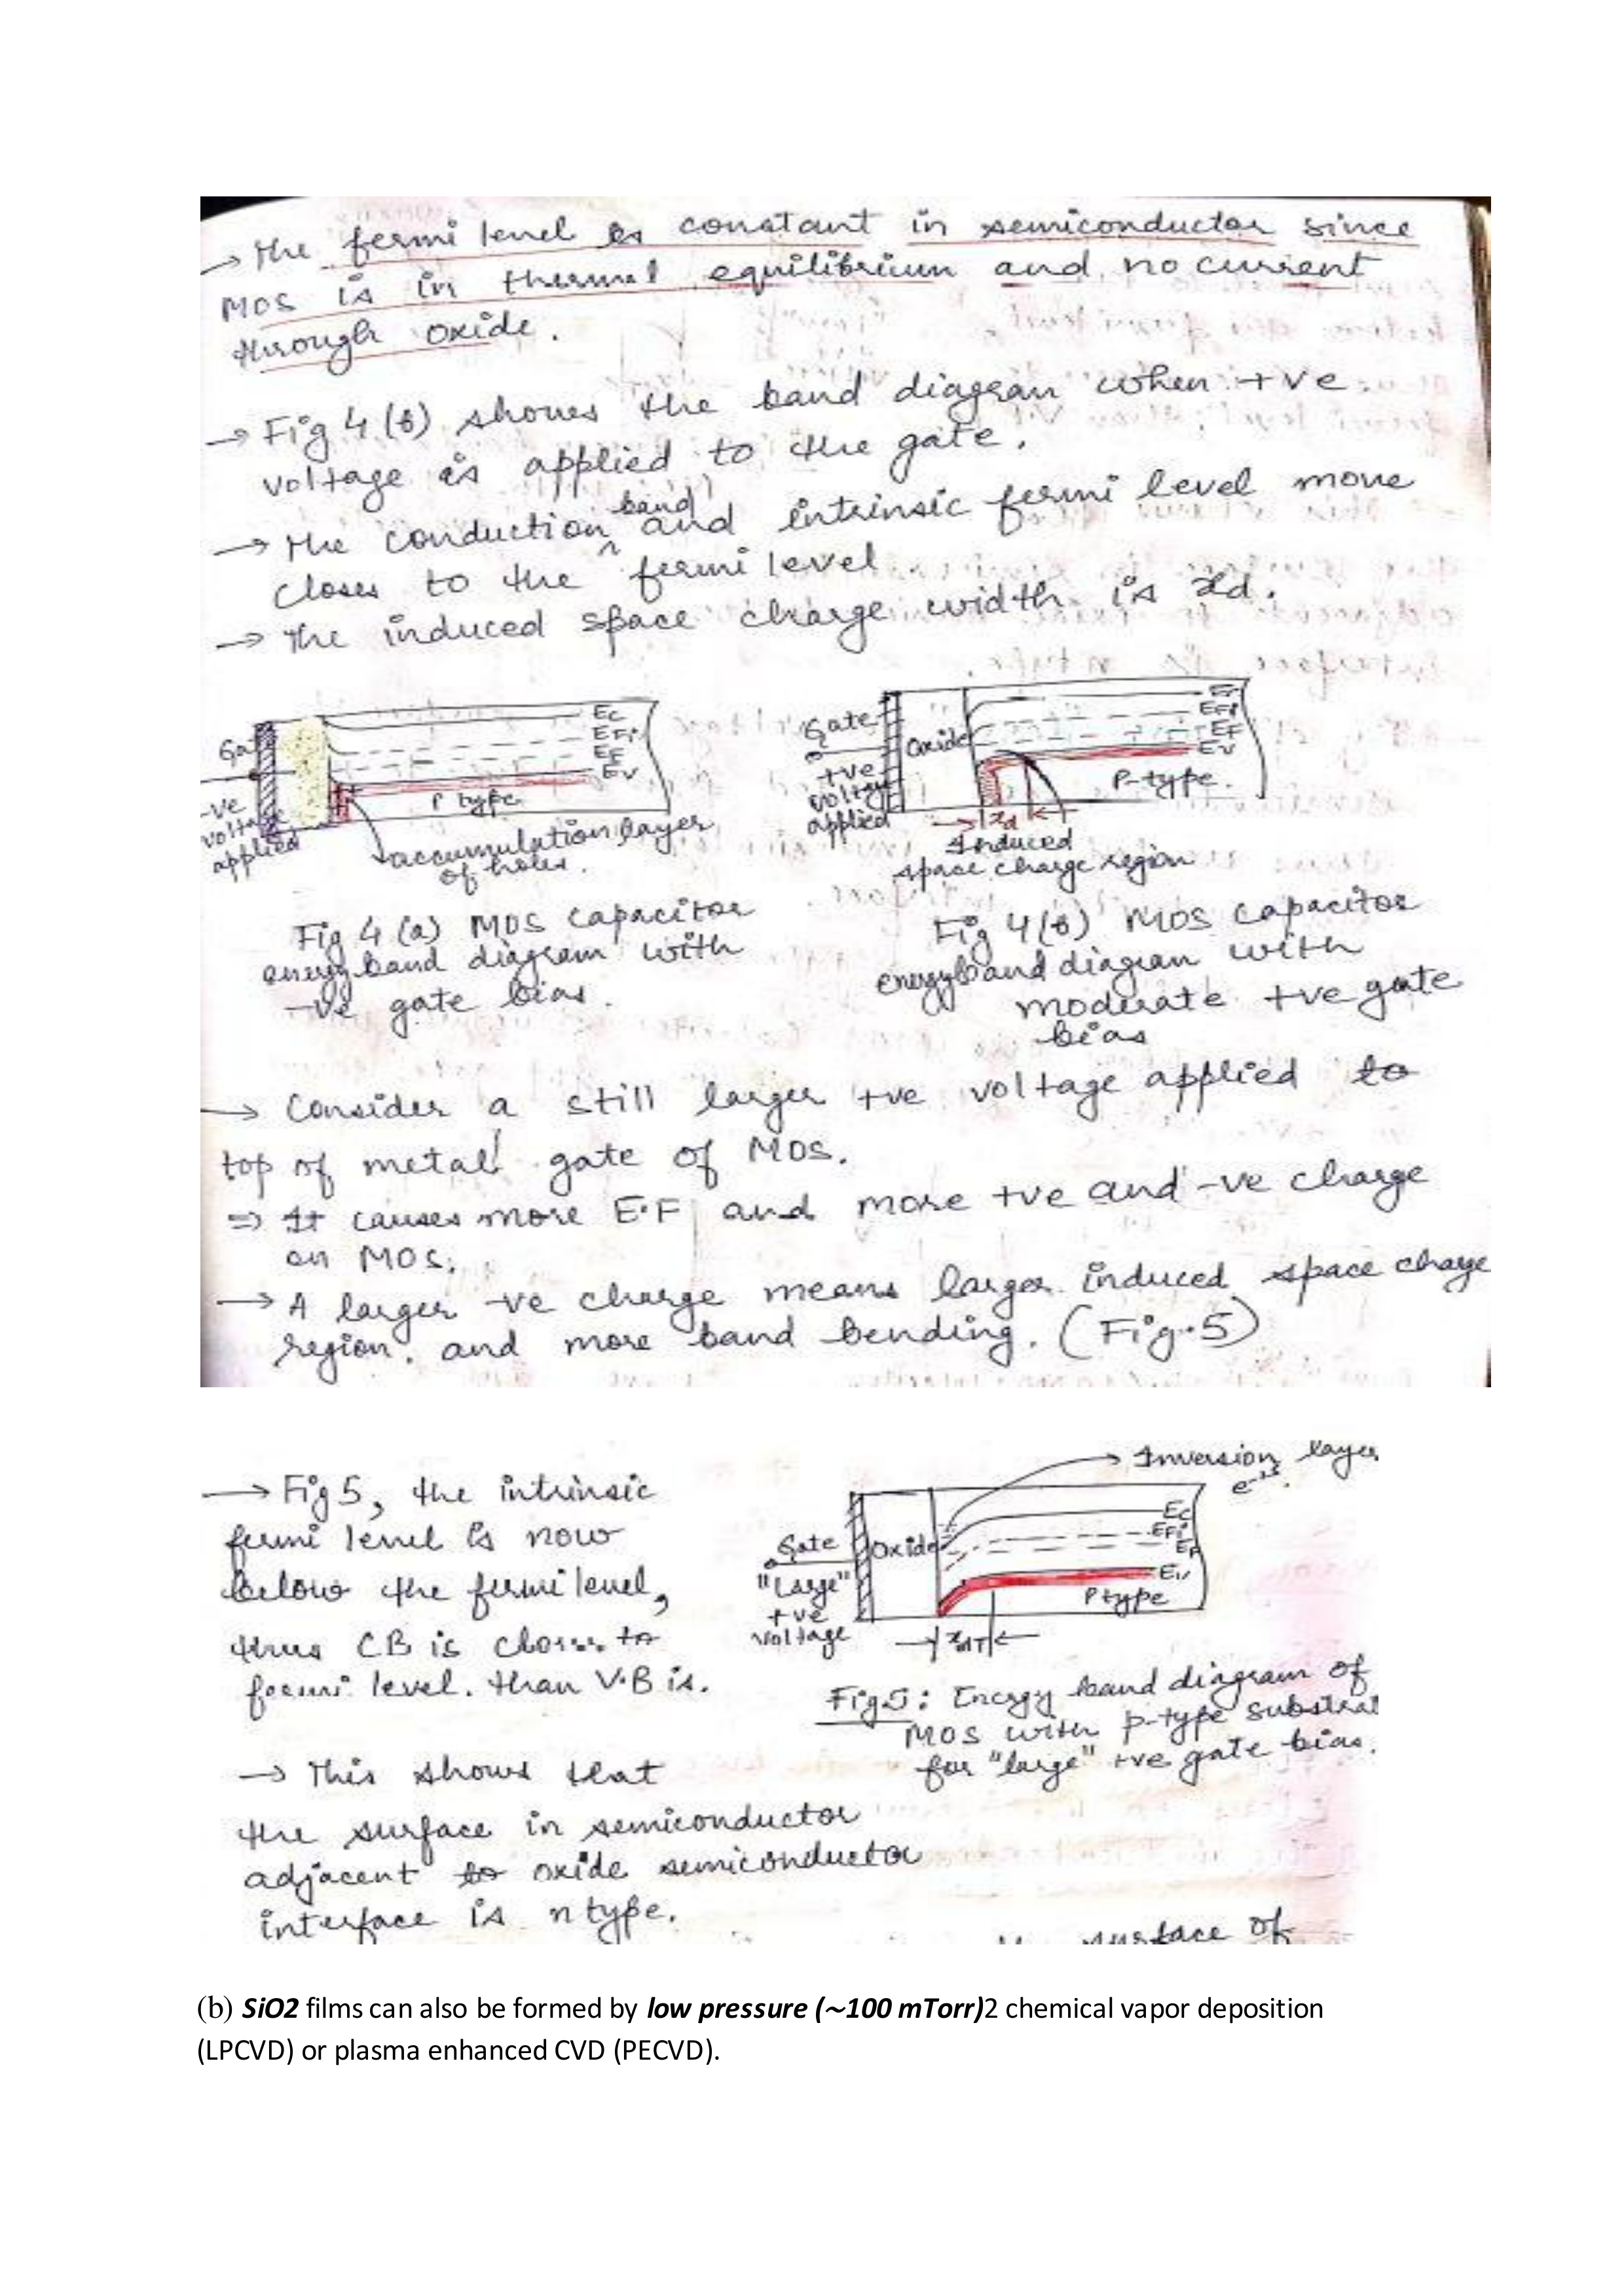 → The fermi level is constant in semiconductor since
MOS is in thermal equilibrium and no current
through oxide.
→ Fig 4(b) shows the band diagram when +ve
voltage is applied to the gate.
→ The conduction band and intrinsic fermi level move
closer to the fermi level
→ The induced space charge width is xd.
Ec
EFi
EF
Ev
P type
-ve
voltage
applied
accumulation layer
of holes.
Fig 4 (a) MOS capacitor
energy band diagram with
-ve gate bias.
Gate
Oxide
+ve
voltage
applied
EFi
EF
Ev
P-type.
xd
Induced
space charge region
Fig 4(b) MOS capacitor
energyband diagram with
moderate +ve gate
bias
→ Consider a still larger +ve voltage applied to
top of metal gate of MOS.
⇒ It causes more E.F and more +ve and -ve charge
on MOS.
→ A larger -ve charge means larger induced space charge
region. and more band bending. (Fig.5)
→ Fig 5, the intrinsic
fermi level is now
below the fermi level,
thus CB is closer to
fermi level. than V.B is.
→ This shows that
the surface in semiconductor
adjacent to oxide semiconductor
interface is n type.
Inversion layer
Gate
Oxide
"Large"
+ve
voltage
Ec
EFi
EF
Ev
P type
xdT
Fig 5: Energy band diagram of
MOS with p-type substrat
for "large" +ve gate bias.
surface of
(b) SiO2 films can also be formed by low pressure (~100 mTorr)2 chemical vapor deposition
(LPCVD) or plasma enhanced CVD (PECVD).